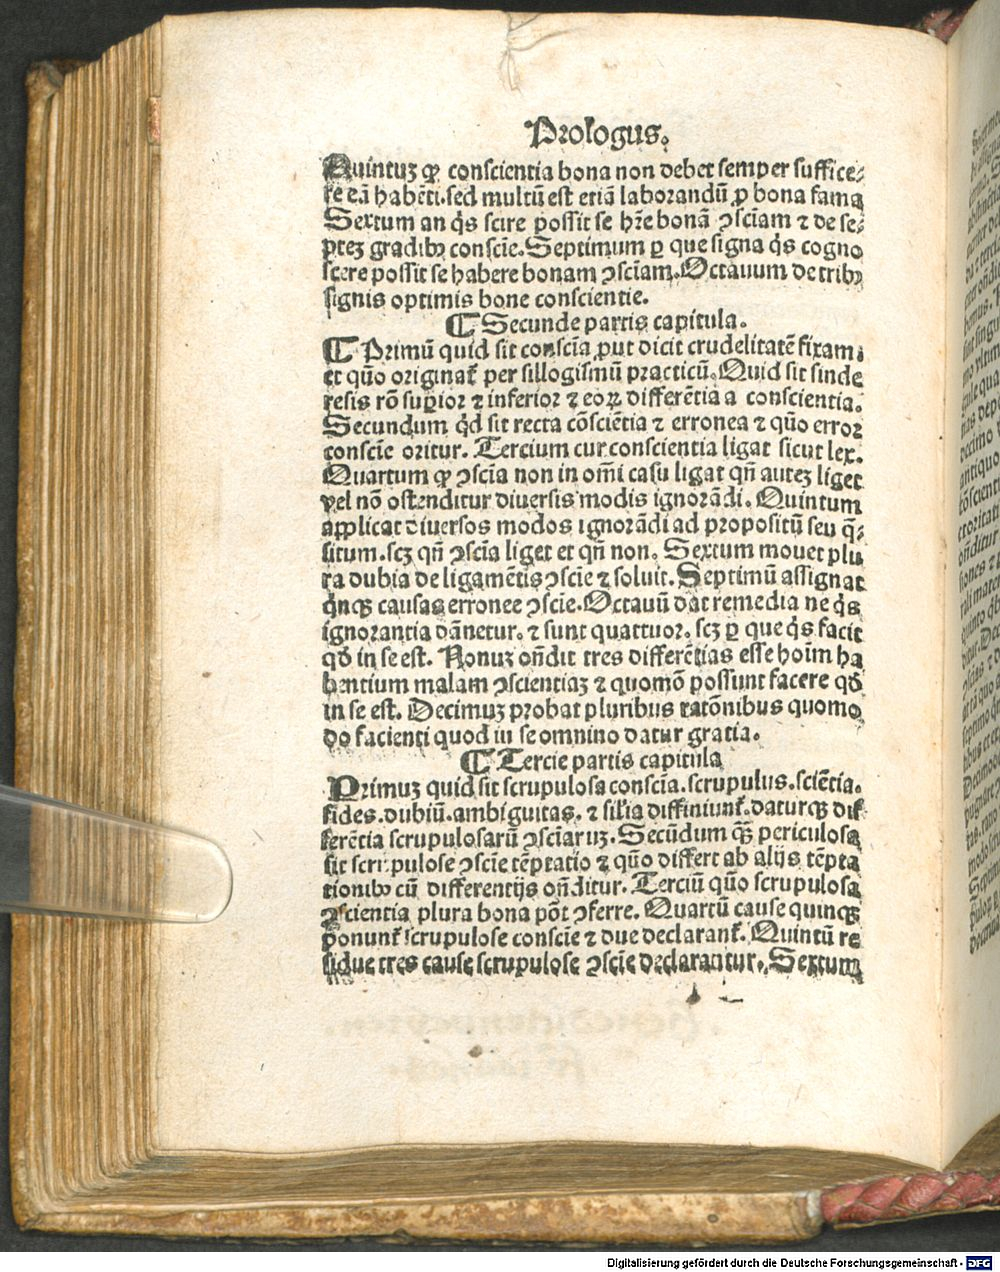 Prologus.
Quintuꝫ ꝙ conscientia bona non debet semper suffice⸗
re eā habēti. sed multū est etiā laborandū ꝓ bona fama
Sextum an q̇s scire possit se hr̄e bonā ꝯsciam ⁊ de se⸗
pteꝫ gradibꝰ conscīe. Septimum ꝑ que signa q̇s cogno
scere possit se habere bonam ꝯscīam. Octauum de tribꝰ
signis optimis bone conscientie.
¶ Secunde partis capitula.
¶ Primū quid sit conscīa ꝓut dicit crudelitatē fixam.
et quō originat᷑ per sillogismū practicū. Quid sit sinde
resis rō supīor ⁊ inferior ⁊ eoꝝ differētia a conscientia.
Secundum q̇d sit recta cōsciētia ⁊ erronea ⁊ quō error
conscīe oritur. Tercium cur conscientia ligat sicut lex.
Quartum ꝙ ꝯscīa non in om̄i casu ligat qn̄ auteꝫ liget
vel nō ostenditur diuersis modis ignorādi. Quintum
applicat diuersos modos ignorādi ad propositū seu q̄⸗
situm. scꝫ qn̄ ꝯscīa liget et qn̄ non. Sextum mouet plu
ra dubia de ligamētis ꝯscīe ⁊ soluit. Septimū assignat
q̇nqꝫ causas erronee ꝯscīe. Octauū dat remedia ne q̇s
ignorantia dānetur. ⁊ sunt quattuor. scꝫ ꝑ que q̇s facit
qđ in se est. Nonuꝫ on̄dit tres differētias esse hoīm ha
bentium malam ꝯscientiaꝫ ⁊ quomō possunt facere qđ
in se est. Decimuꝫ probat pluribus ratōnibus quomo
do facienti quod in se omnino datur gratia.
¶ Tercie partis capitula
Primuꝫ quid sit scrupulosa conscīa. scrupulus. sciētia.
fides. dubiū. ambiguitas. ⁊ sil̄ia diffiniunt᷑. daturqꝫ dif
ferētia scrupulosarū ꝯscīaruꝫ. Secūdum qꝫ̄ periculosa
sit scrupulose ꝯscīe tēptatio ⁊ quō differt ab alijs tēpta
tionibꝰ cū differentijs on̄ditur. Terciū quō scrupulosa
ꝯscientia plura bona pōt ꝯferre. Quartū cause quinqꝫ
ponunt᷑ scrupulose conscīe ⁊ due declarant᷑. Quintū re
sidue tres cause scrupulose ꝯscīe declarantur. Sextum
Digitalisierung gefördert durch die Deutsche Forschungsgemeinschaft - DFG